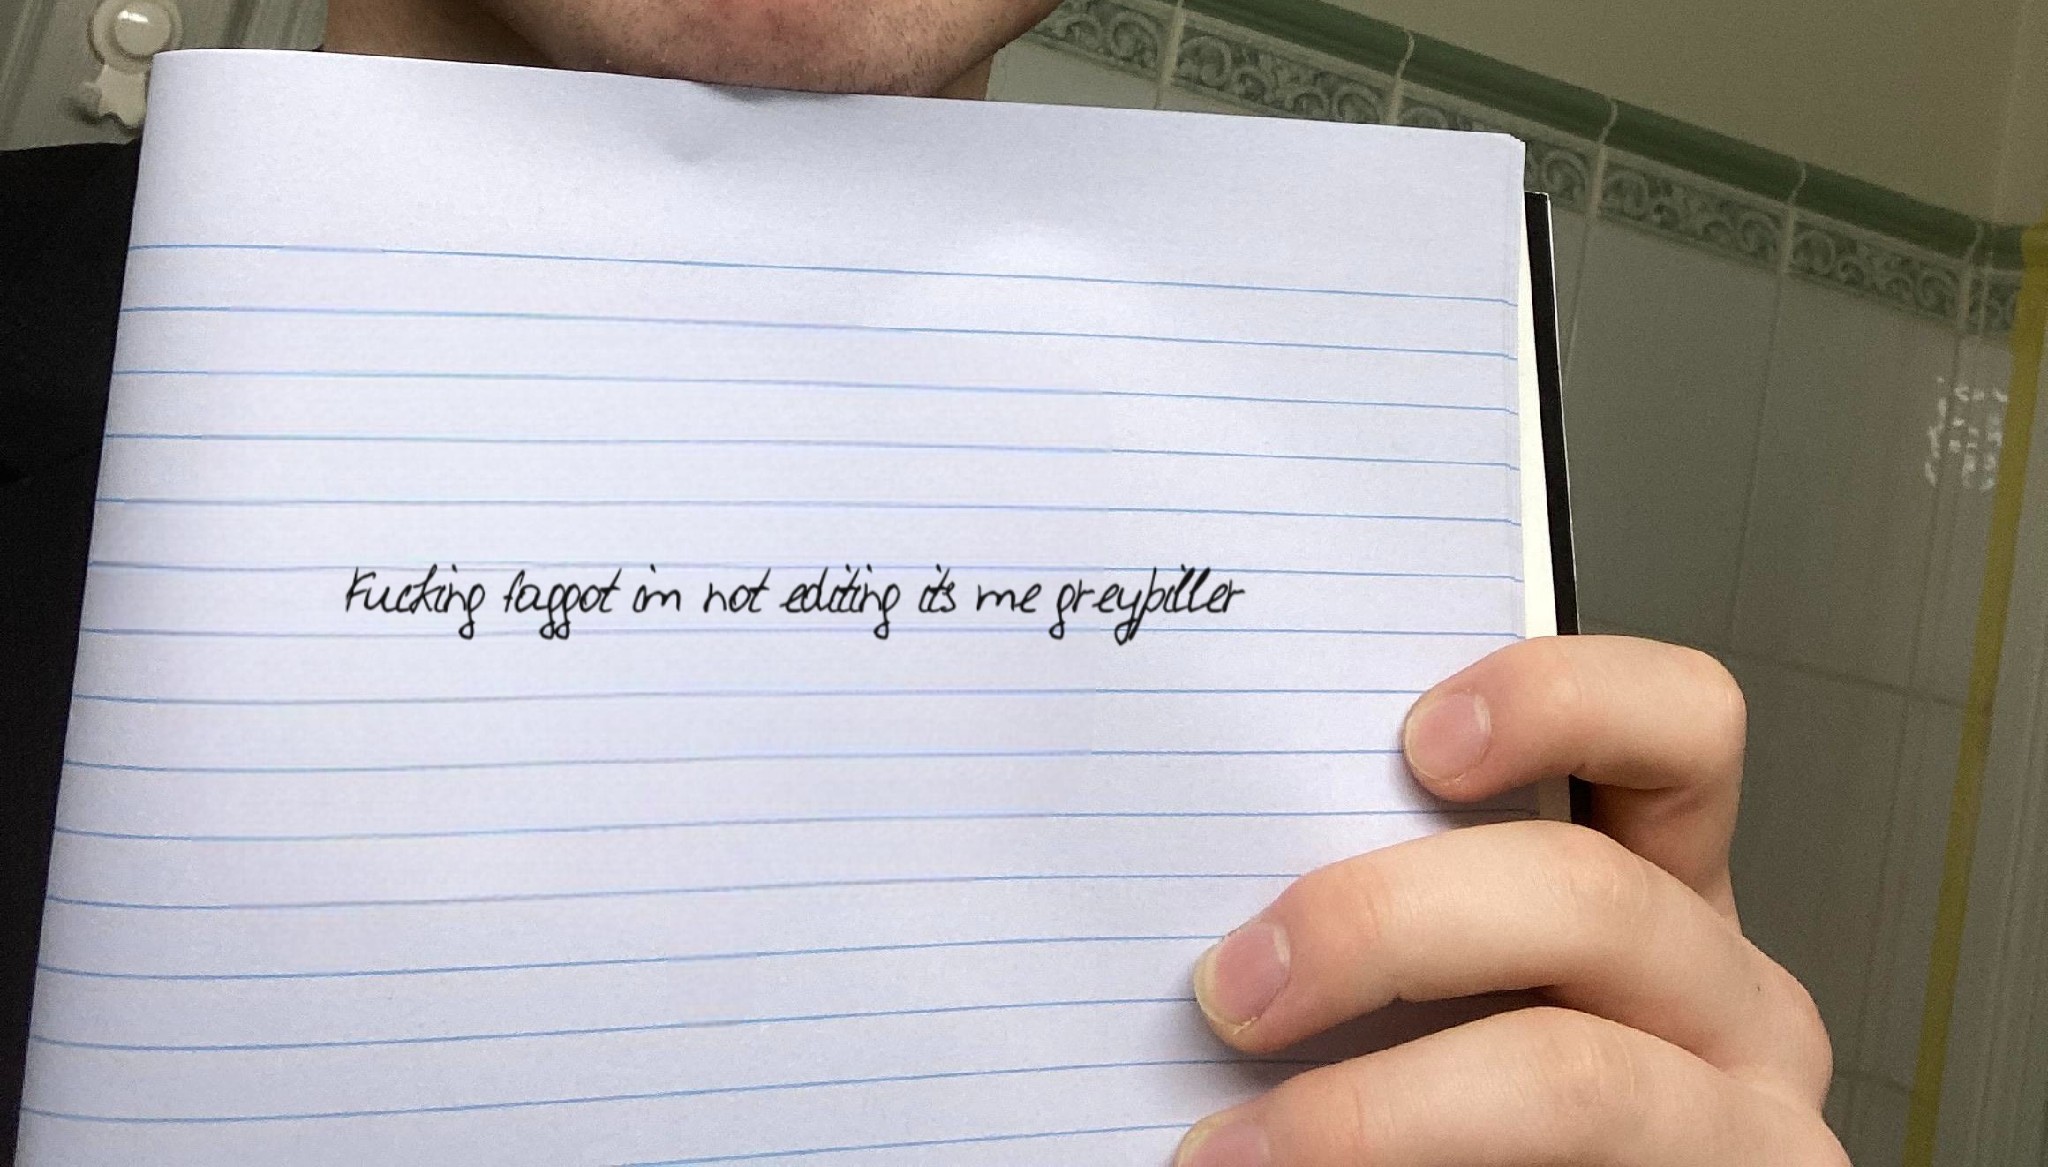 Fucking faggot im not editing its me greypiller